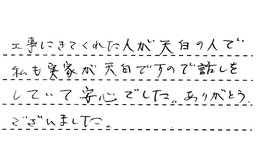 工事にきてくれた人が天白の人で
私も実家が天白ですので話しを
していて安心でした。ありがとう
ございました。